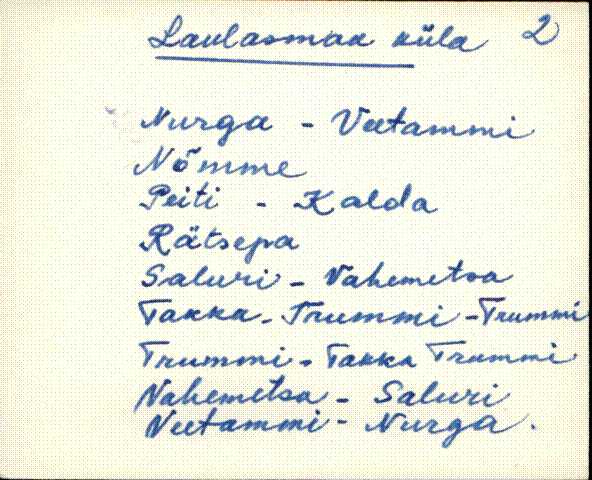 Laulasmaa küla 2
Nurga - Veetammi
Nõmme
Peiti - Kalda
Rätsepa
Saluri - Vahemetsa
Takka - Trummi - Trummi
Trummi - Takka Trummi
Vahemetsa - Saluri
Veetammi - Nurga.